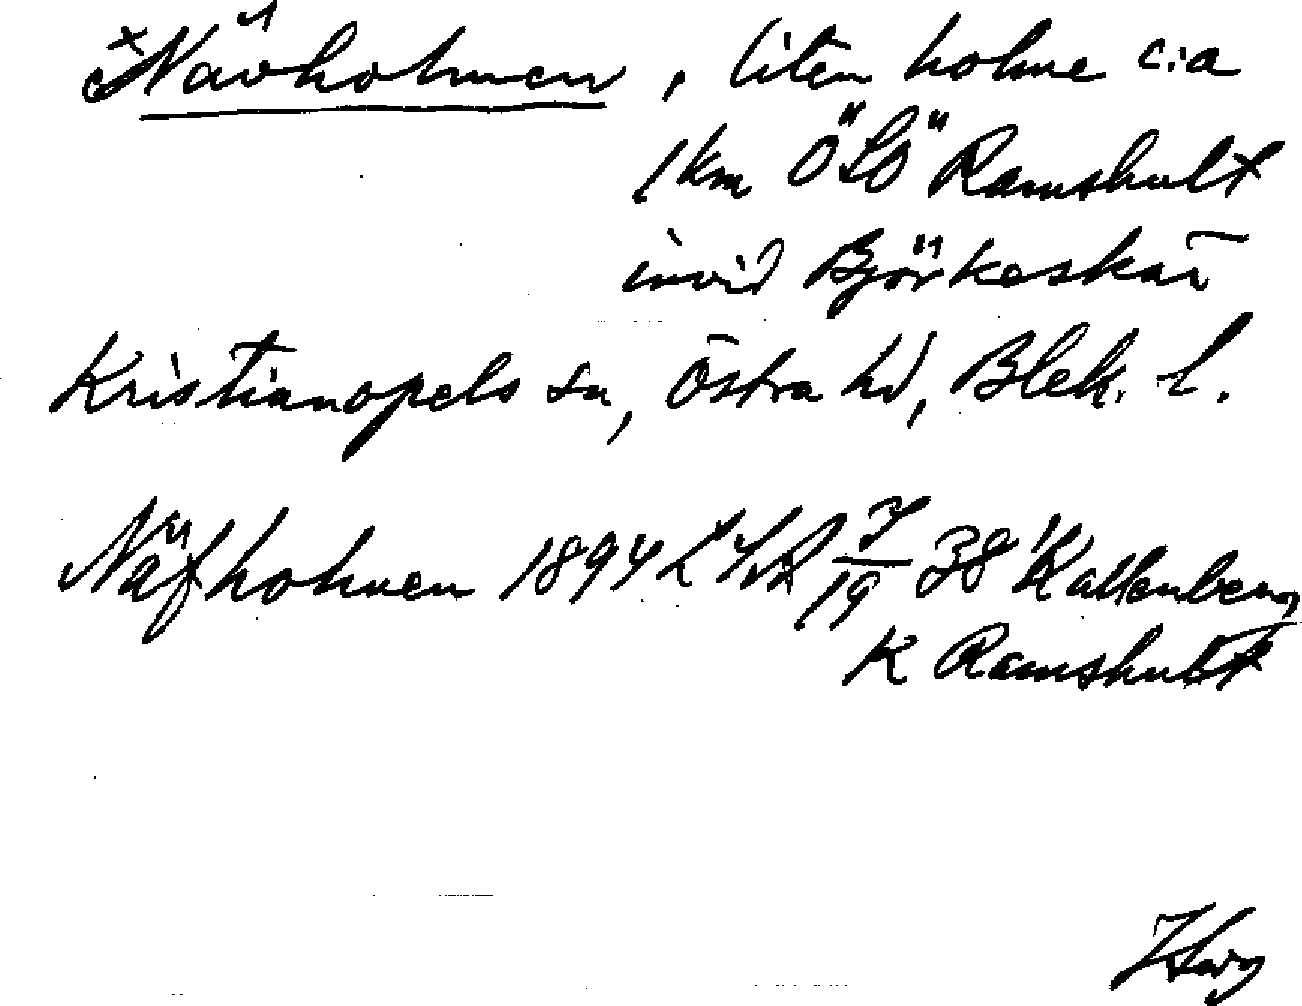 ×Nävholmen, liten holme c:a
1 km ÖSÖ Ramshult
invid Björkeskär
Kristianopels sn, Östra hd, Blek. l.
Näfholmen 1894 LSA 7/19 38 Kallenberg
K Ramshult